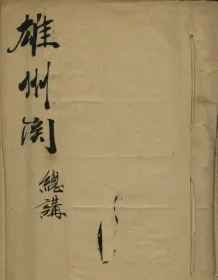 雄州関
總講